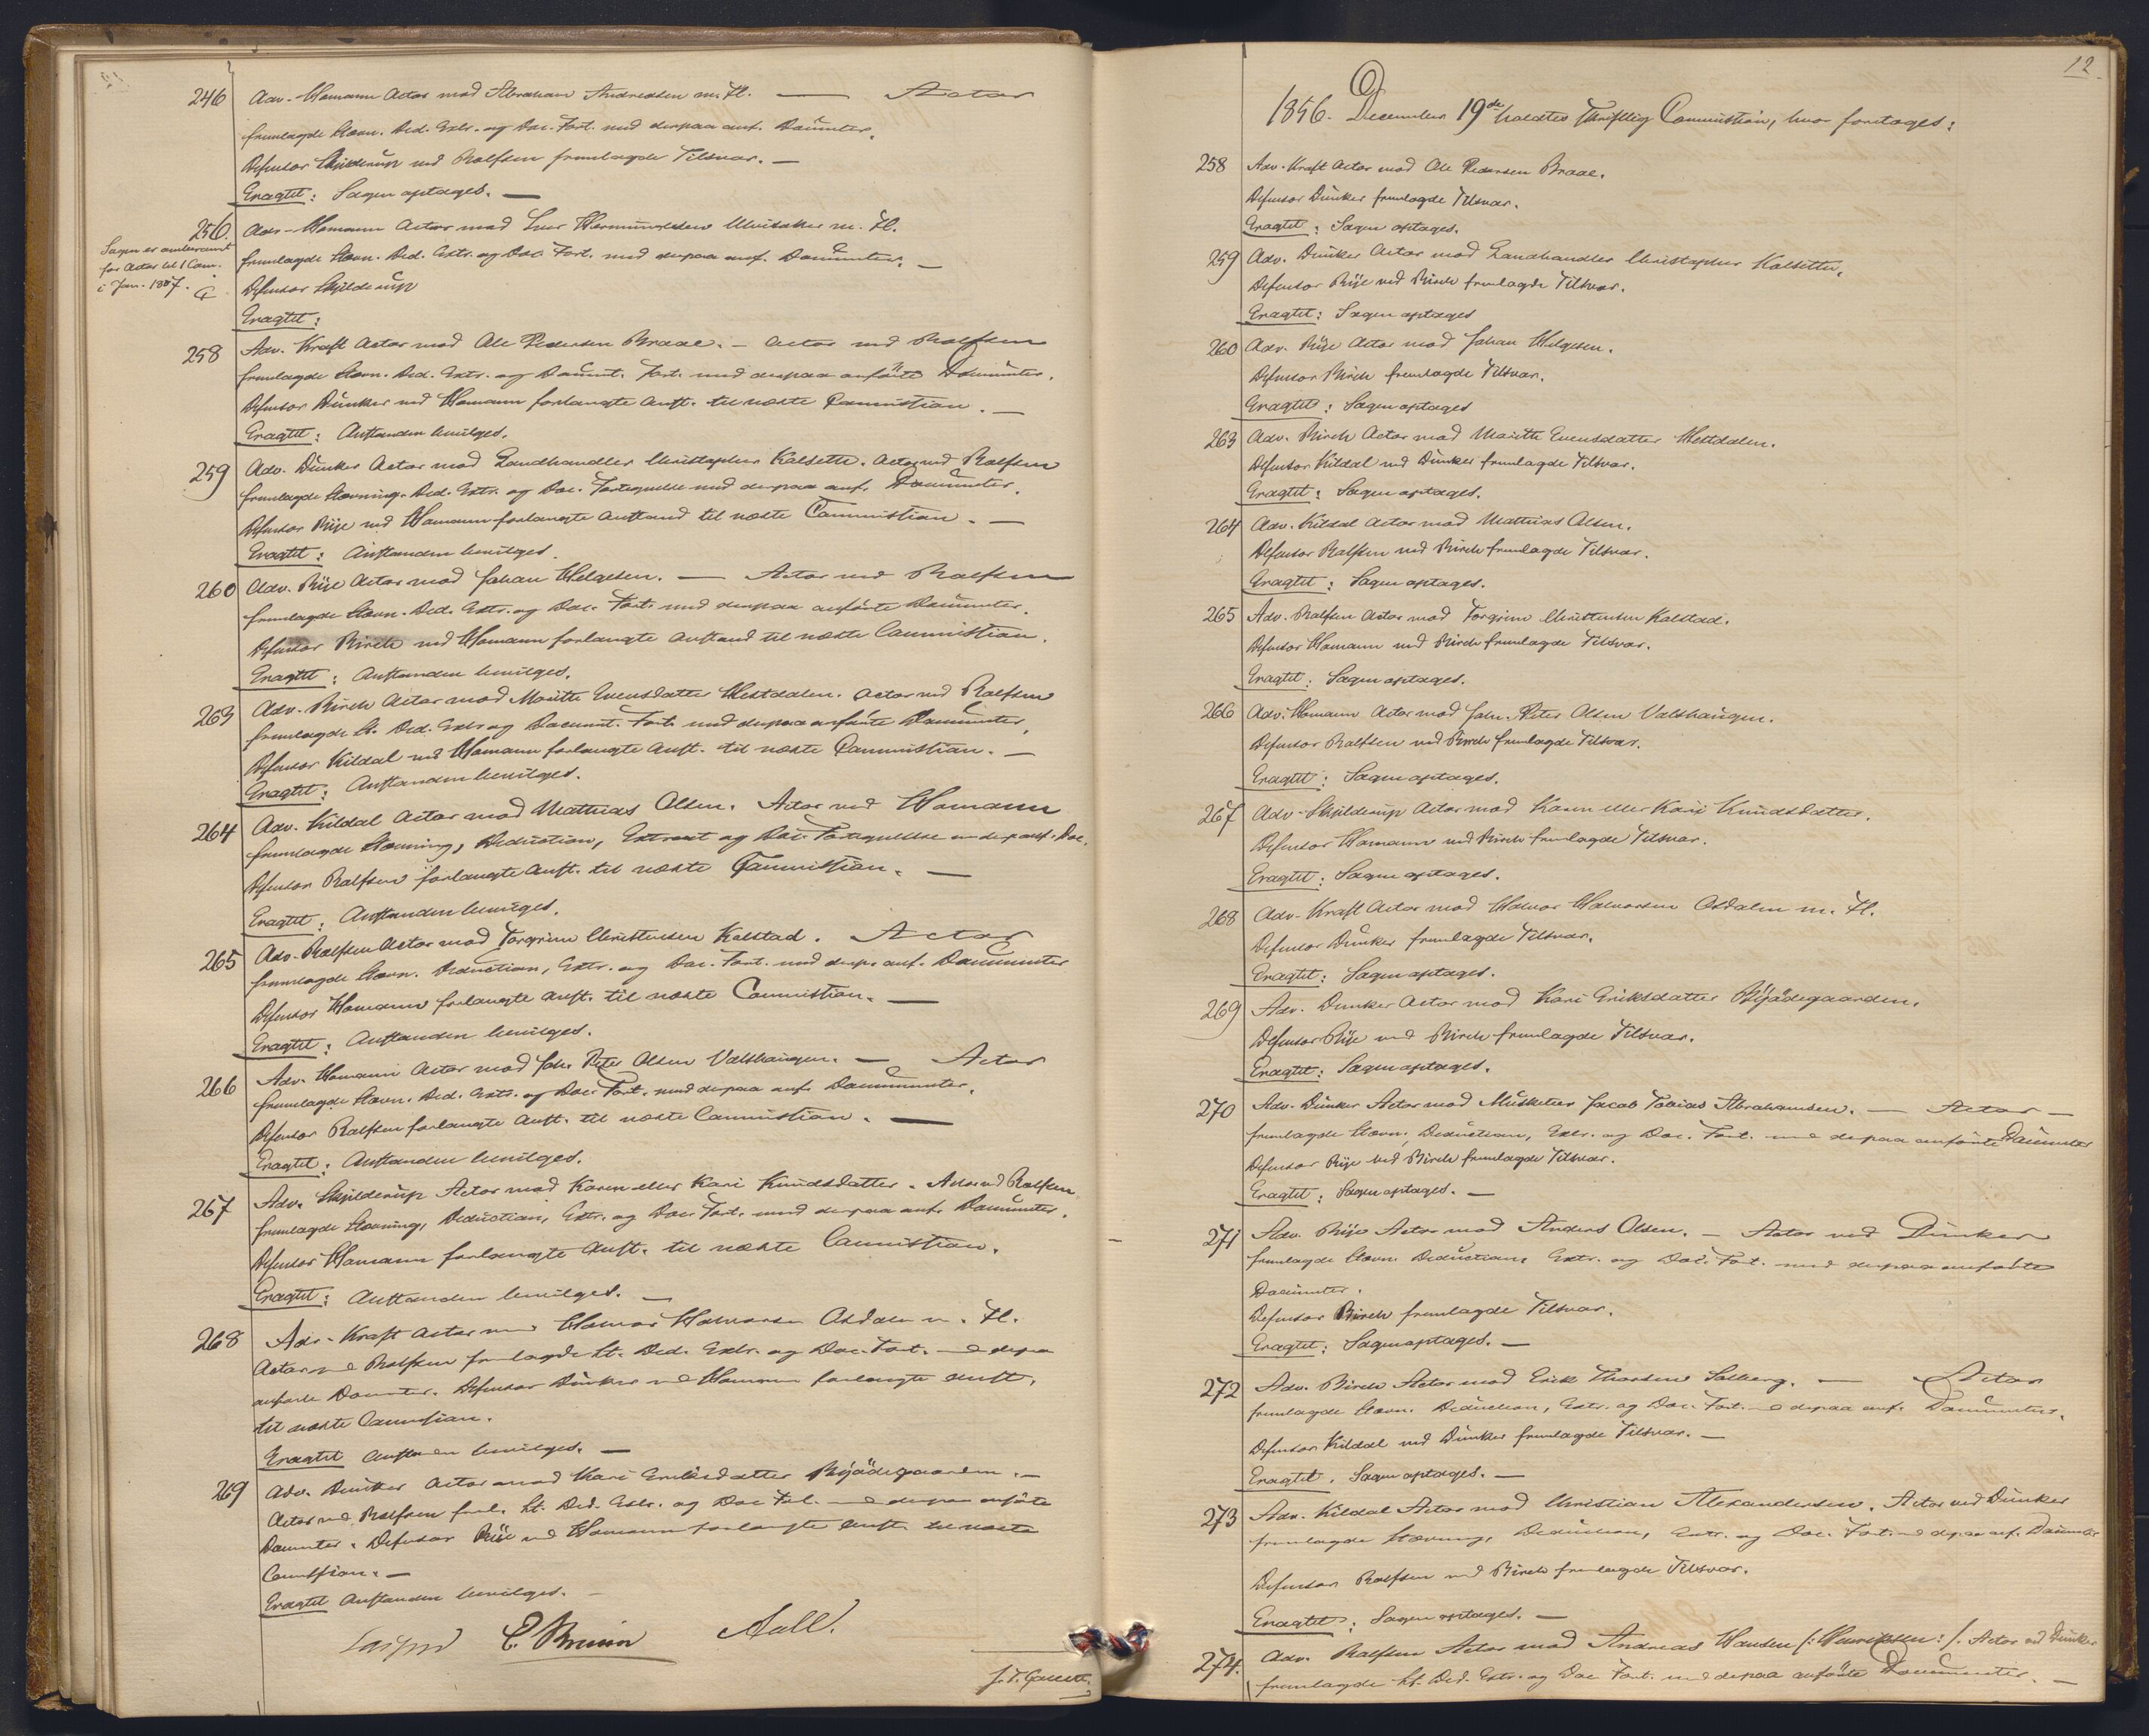 246 Adv. Homann Actor mod Abraham Andreasen m. Fl. — Actor
fremlagde Stevn. Ded. Extr. og Doc. Fort. med derpaa anf. Documenter.
Defensor Skjilderup ved Rolfsen fremlagde Tilsvar. —
Eragtet: Sagen optages. —
256. Adv. Homann Actor mod Hermundsen Ulvisaker m. Fl.
Sagen er
for Actor til 1 Com.
i Jan. 1857.
fremlagde Stevn. Ded. Extr. og Doc. Fort. med derpaa anf. Documenter. —
Defensor Skjilderup
Eragtet:
258 Adv. Kraft Actor mod Ole Pedersen Braae. — Actor ved Rolfsen
fremlagde Stevn. Ded. Extr. og Documt. Fort. med derpaa anførte Documenter.
Defensor Dunker ved Homann forlangte Anst. til næste Commission. —
Eragtet: Anstanden bevilges.
259 Adv. Dunker Actor mod Landhandler Christopher Kalseth. Actor ved Rolfsen
fremlagde Stevning. Ded. Extr. og Doc. Fortegnelse med derpaa anf. Documenter.
Defensor Rije ved Homann forlangte Anstand til næste Commission. —
Eragtet: Anstanden bevilges.
260 Adv. Rije Actor mod Johan Helgesen. — Actor ved Rolfsen
fremlagde Stevn. Ded. Extr. og Doc. Fort. med derpaa anførte Documenter.
Defensor Birch ved Homann forlangte Anstand til næste Commission.
Eragtet: Anstanden bevilges.
263 Adv. Birch Actor mod Marith Evensdatter Hestdalen. Actor ved Rolfsen
fremlagde St. Ded. Extr og Documt. Fort. med derpaa anførte Documenter.
Defensor Kildal ved Homann forlangte Anst. til næste Commission. —
Eragtet: Anstanden bevilges.
264 Adv. Kildal Actor mod Mathias Olsen. Actor ved Homann
fremlagde Stevning, Deduction, Extract og Doc. Fortegnelse m derp anf. Doc.
Defensor Rolfsen forlangte Anst. til næste Commission. —
Eragtet: Anstanden bevilges.
265 Adv. Rolfsen Actor mod Torgrim Christensen Kalstad. Actor
fremlagde Stevn. Deduction, Extr. og Doc. Fort. med derp. anf. Documenter
Defensor Homann forlangte Anst. til næste Commission. —
Eragtet: Anstanden bevilges.
266 Adv. Homann Actor mod Joh. Peter Olsen Valshaugen. — Actor
fremlagde Stevn. Ded. Extr. og Doc. Fort. med derpaa anf. Documenter.
Defensor Rolfsen forlangte Anst. til næste Commission. —
Eragtet: Anstanden bevilges.
267 Adv. Skjilderup Actor mod Karen eller Kari Knudsdatter. Actor ved Rolfsen
fremlagde Stevning, Deduction, Extr. og Doc. Fort. med derpaa anf. Documenter.
Defensor Homann forlangte Anst. til næste Commission.
Eragtet: Anstanden bevilges. —
268 Adv. Kraft Actor mod Halvor Halvorsen Osdalen m. Fl.
Actor ved Rolfsen fremlagde St. Ded. Extr. og Doc. Fort. med derpaa
anførte Documenter. Defensor Dunker ved Homann forlangte Anst.
til næste Commission.
Eragtet Anstanden bevilges. —
269 Adv. Dunker Actor mod Kari Eriksdatter Bjødegaarden. —
Actor ved Rolfsen freml. St. Ded. Extr. og Doc Fort. med derpaa anførte
Documenter. Defensor Rije ved Homann forlangte Anst. til næste
Commission. —
Eragtet Anstanden bevilges. —
E. Bruun Aall.
12.
1856. December 19de holdtes skriftlig Commission, hvor foretages:
258 Adv. Kraft Actor mod Ole Pedersen Braae.
Defensor Dunker fremlagde Tilsvar.
Eragtet: Sagen optages.
259 Adv. Dunker Actor mod Landhandler Christopher Kalseth.
Defensor Rije ved Birch fremlagde Tilsvar.
Eragtet: Sagen optages
260 Adv. Rije Actor mod Johan Helgesen.
Defensor Birch fremlagde Tilsvar.
Eragtet: Sagen optages
263 Adv. Birch Actor mod Marith Evensdatter Hestdalen.
Defensor Kildal ved Dunker fremlagde Tilsvar.
Eragtet: Sagen optages.
264 Adv. Kildal Actor mod Mathias Olsen.
Defensor Rolfsen ved Birch fremlagde Tilsvar.
Eragtet: Sagen optages.
265 Adv. Rolfsen Actor mod Torgrim Christensen Kalstad.
Defensor Homann ved Birch fremlagde Tilsvar.
Eragtet: Sagen optages.
266 Adv. Homann Actor mod Joh. Peter Olsen Valshaugen.
Defensor Rolfsen ved Birch fremlagde Tilsvar.
Eragtet: Sagen optages.
267 Adv. Skjilderup Actor mod Karen eller Kari Knudsdatter.
Defensor Homann ved Birch fremlagde Tilsvar.
Eragtet: Sagen optages.
268 Adv. Kraft Actor mod Halvor Halvorsen Osdalen m. Fl.
Defensor Dunker fremlagde Tilsvar.
Eragtet: Sagen optages.
269 Adv. Dunker Actor mod Kari Eriksdatter Bjødegaarden.
Defensor Rije ved Birch fremlagde Tilsvar.
Eragtet: Sagen optages.
270 Adv. Dunker Actor mod Musketeer Jacob Tobias Abrahamsen. — Actor —
fremlagde Stevn. Deduction, Extr. og Doc. Fort. med derpaa anførte Documenter
Defensor Rije ved Birch fremlagde Tilsvar.
Eragtet: Sagen optages. —
271 Adv. Rije Actor mod Anders Olsen. — Actor ved Dunker
fremlagde Stevn. Deduction, Extr. og Doc. Fort. med derpaa anførte
Documenter.
Defensor Birch fremlagde Tilsvar.
Eragtet: Sagen optages. —
272 Adv. Birch Actor mod Erik Thorsen Solberg. — Actor
fremlagde Stevn. Deduction, Extr. og Doc. Fort. med derpaa anf. Documenter.
Defensor Kildal ved Dunker fremlagde Tilsvar. —
Eragtet. Sagen optages. —
273 Adv. Kildal Actor mod Christian Alexandersen. Actor ved Dunker
fremlagde Stevning, Deduction, Extr. og Doc. Fort. med derpaa anf. Documenter
Defensor Rolfsen ved Birch fremlagde Tilsvar.
Eragtet: Sagen optages. —
274. Adv. Rolfsen Actor mod Andreas Hansen /: Henriksen :/. Actor ved Dunker
fremlagde St. Ded. Extr. og Doc Fort. med derpaa anførte Documenter. —